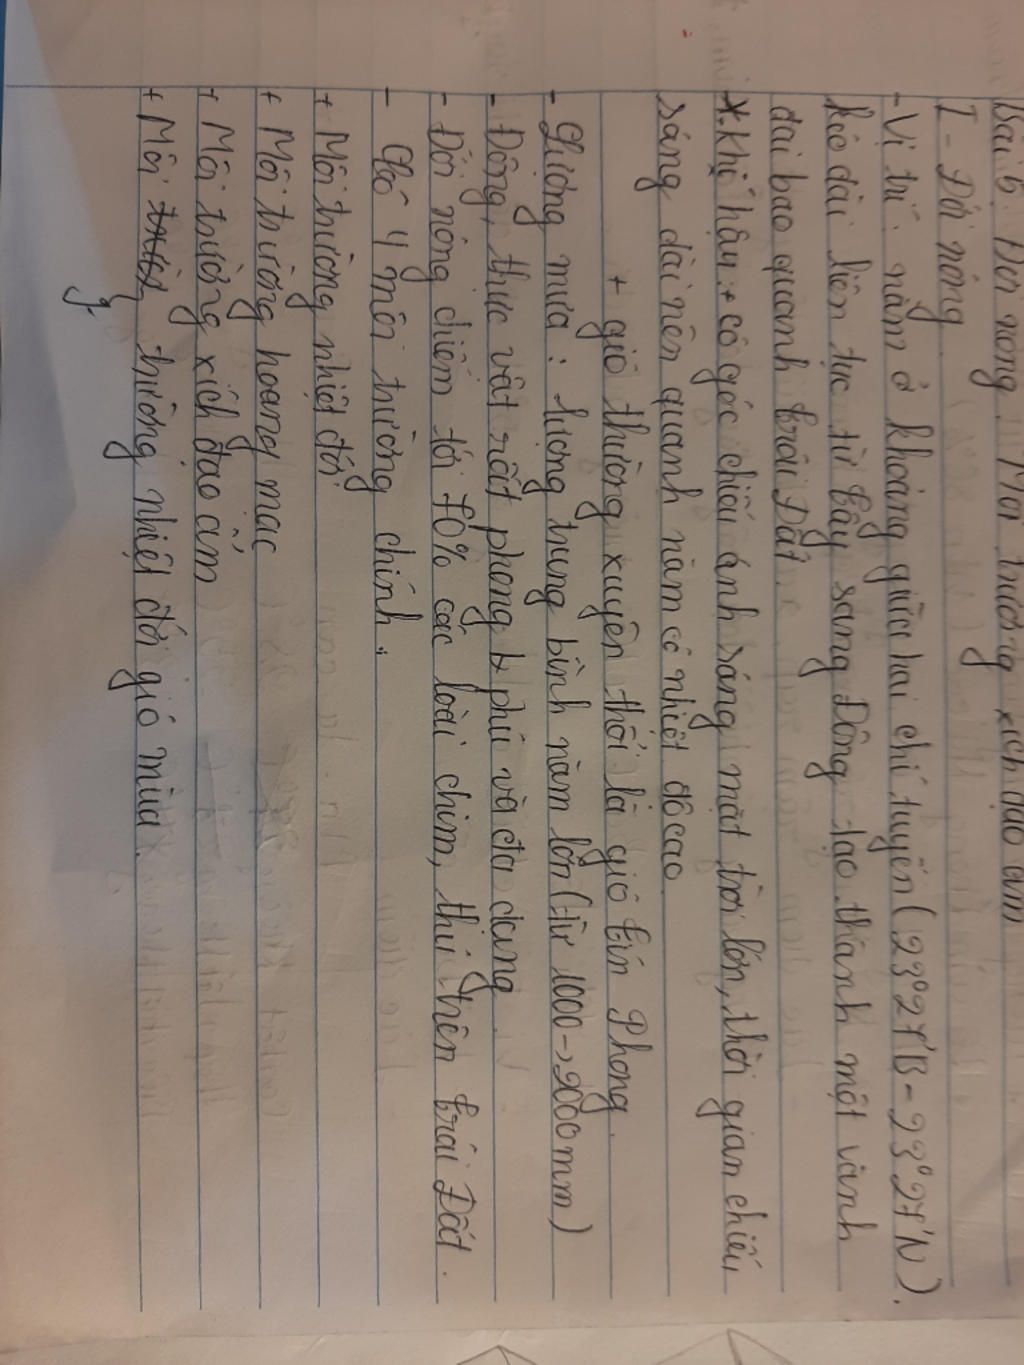 Bài 5: Đới nóng. Môi trường xích đạo ẩm
I - Đới nóng
- Vị trí: nằm ở khoảng giữa hai chí tuyến (23°27'B - 23°27'N).
kéo dài liên tục từ Tây sang Đông tạo thành một vành
đai bao quanh trái Đất.
* Khí hậu: + có góc chiếu ánh sáng mặt trời lớn, thời gian chiếu
sáng dài nên quanh năm có nhiệt độ cao
+ gió thường xuyên thổi là gió tín Phong.
- Lượng mưa: lượng trung bình năm lớn (từ 1000 -> 2000mm)
- Động, thực vật rất phong phú và đa dạng
- Đới nóng chiếm tới 70% các loài chim, thú trên trái Đất.
- Có 4 môi trường chính.
+ Môi trường nhiệt đới
+ Môi trường hoang mạc
+ Môi trường xích đạo ẩm
+ Môi trường nhiệt đới gió mùa.